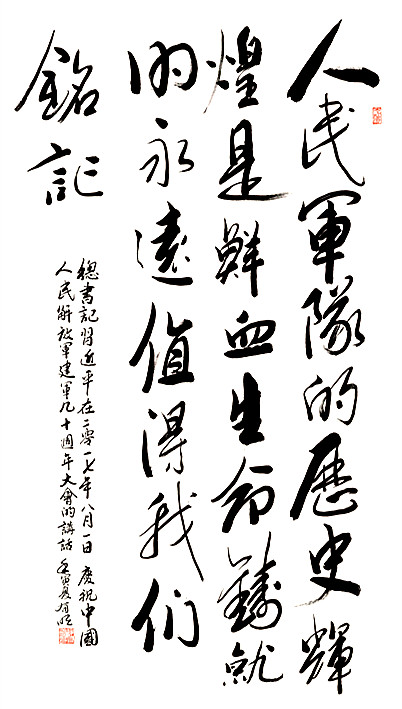 人民軍隊的歷史輝
煌是鮮血生命鑄就
的永遠值得我们
銘記
總書記習近平在二零一七年八月一日 慶祝中國
人民解放軍建軍九十週年大會的講話 壬寅夏